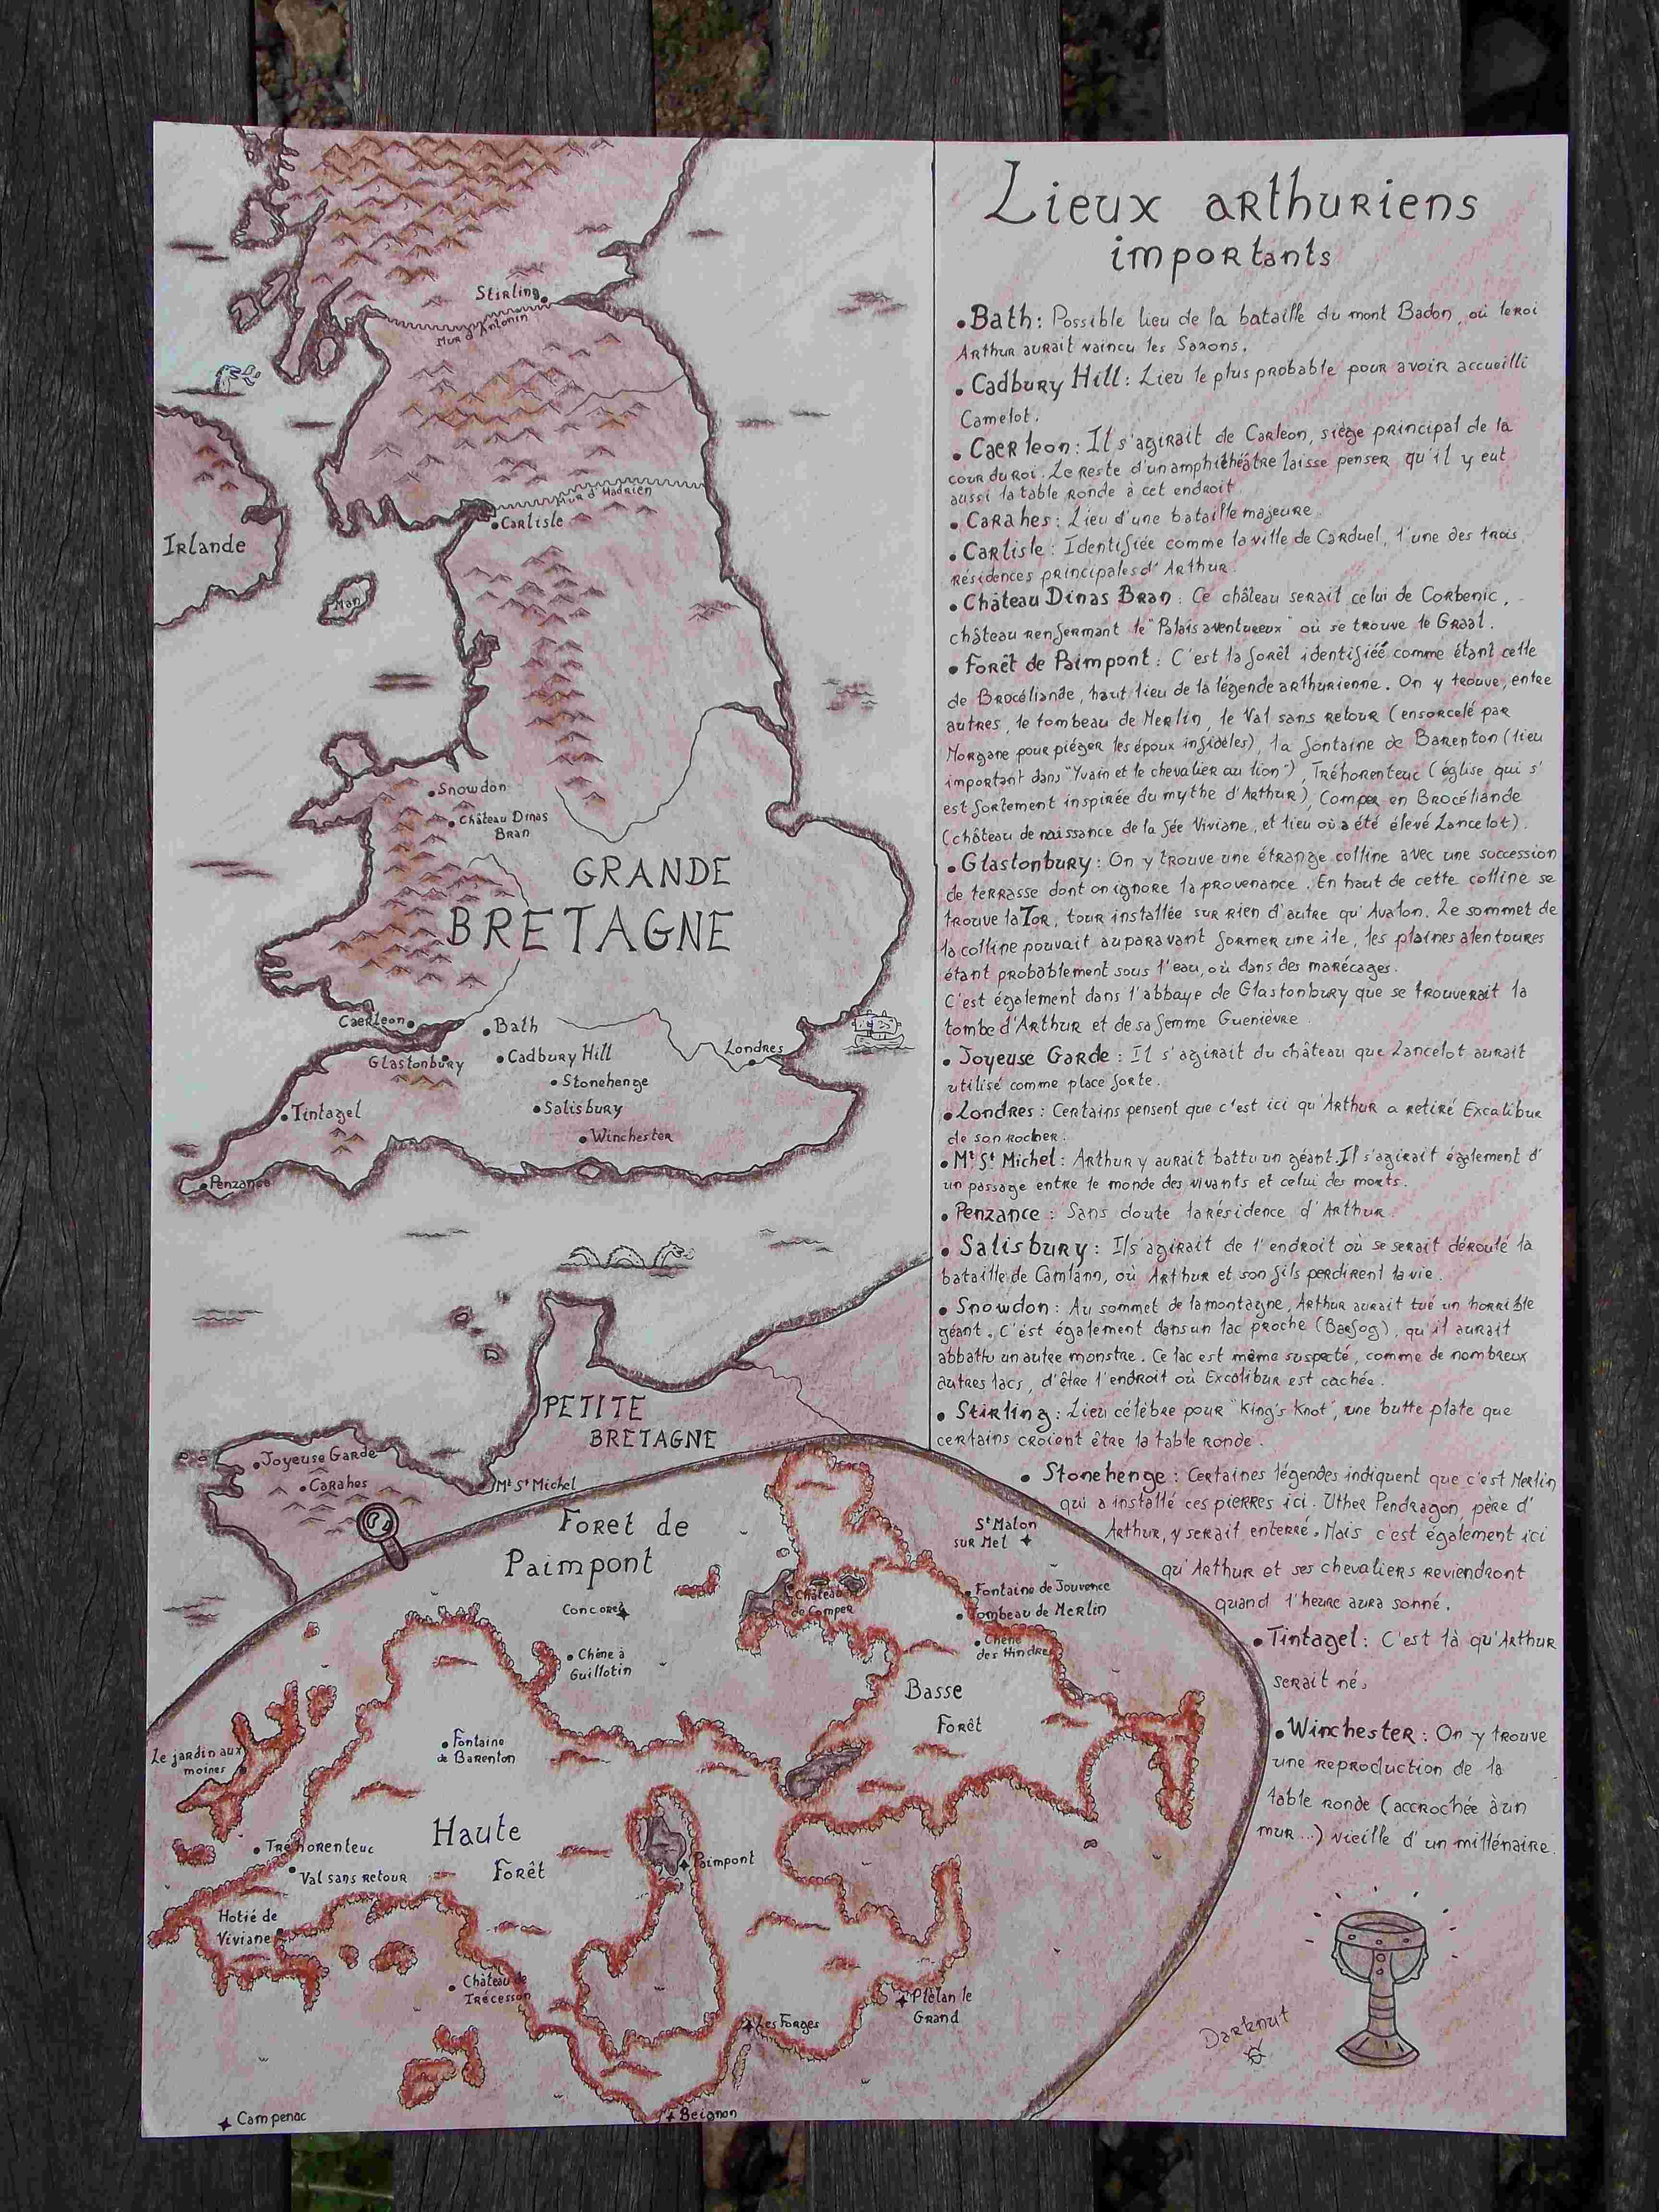 Lieux arthuriens
importants
• Bath : Possible lieu de la bataille du mont Badon, où le roi
Arthur aurait vaincu les Saxons.
• Cadbury Hill : Lieu le plus probable pour avoir accueilli
Camelot.
• Caerleon : Il s'agirait de Carleon, siège principal de la
cour du roi. Le reste d'un amphithéâtre laisse penser qu'il y eut
aussi la table ronde à cet endroit
• Carahes : Lieu d'une bataille majeure
• Carlisle : Identifiée comme la ville de Carduel, l'une des trois
résidences principales d'Arthur.
• Château Dinas Bran : Ce château serait celui de Corbenic,
château renfermant le "Palais aventureux" où se trouve le Graal.
• Forêt de Paimpont : C'est la forêt identifiée comme étant celle
de Brocéliande, haut lieu de la légende arthurienne. On y trouve, entre
autres, le tombeau de Merlin, le Val sans retour (ensorcelé par
Morgane pour piéger les époux infidèles), la fontaine de Barenton (lieu
important dans "Yvain et le chevalier au lion"), Tréhorenteuc (église qui s'
est fortement inspirée du mythe d'Arthur), Comper en Brocéliande
(château de naissance de la fée Viviane, et lieu où a été élevé Lancelot).
• Glastonbury : On y trouve une étrange colline avec une succession
de terrasse dont on ignore la provenance. En haut de cette colline se
trouve la Tor, tour installée sur rien d'autre qu'Avalon. Le sommet de
la colline pouvait auparavant former une île, les plaines alentoures
étant probablement sous l'eau, où dans des marécages.
C'est également dans l'abbaye de Glastonbury que se trouverait la
tombe d'Arthur et de sa femme Guenièvre
• Joyeuse Garde : Il s'agirait du château que Lancelot aurait
utilisé comme place forte.
• Londres : Certains pensent que c'est ici qu'Arthur a retiré Excalibur
de son rocher.
• Mt St Michel : Arthur y aurait battu un géant. Il s'agirait également d'
un passage entre le monde des vivants et celui des morts.
• Penzance : Sans doute la résidence d'Arthur.
• Salisbury : Il s'agirait de l'endroit où se serait déroulé la
bataille de Camlann, où Arthur et son fils perdirent la vie.
• Snowdon : Au sommet de la montagne, Arthur aurait tué un horrible
géant. C'est également dans un lac proche (Barfog), qu'il aurait
abbattu un autre monstre. Ce lac est même suspecté, comme de nombreux
autres lacs, d'être l'endroit où Excalibur est cachée.
• Stirling : Lieu célèbre pour "King's Knot", une butte plate que
certains croient être la table ronde.
• Stonehenge : Certaines légendes indiquent que c'est Merlin
qui a installé ces pierres ici. Uther Pendragon, père d'
Arthur, y serait enterré. Mais c'est également ici
qu'Arthur et ses chevaliers reviendront
quand l'heure aura sonné.
• Tintagel : C'est là qu'Arthur
serait né.
• Winchester : On y trouve
une reproduction de la
table ronde (accrochée à un
mur...) vieille d'un millénaire.
Darknut
Stirling
Mur d'Antonin
Mur d'Hadrien
Carlisle
Irlande
Man
Snowdon
Château Dinas
Bran
GRANDE
BRETAGNE
Caerleon
Bath
Glastonbury
Cadbury Hill
Londres
Stonehenge
Tintagel
Salisbury
Winchester
Penzance
PETITE
BRETAGNE
Joyeuse Garde
Carahes
Mt St Michel
Foret de
Paimpont
St Malon
sur Mel
Concoret
Château
de Comper
Fontaine de Jouvence
Tombeau de Merlin
Chêne
des Hindres
Chêne à
Guillotin
Basse
Forêt
Fontaine
de Barenton
Le jardin aux
moines
Haute
Forêt
Tréhorenteuc
Val sans retour
Paimpont
Hotié de
Viviane
Château de
Trécesson
Plélan le
Grand
Les Forges
Campenac
Beignon